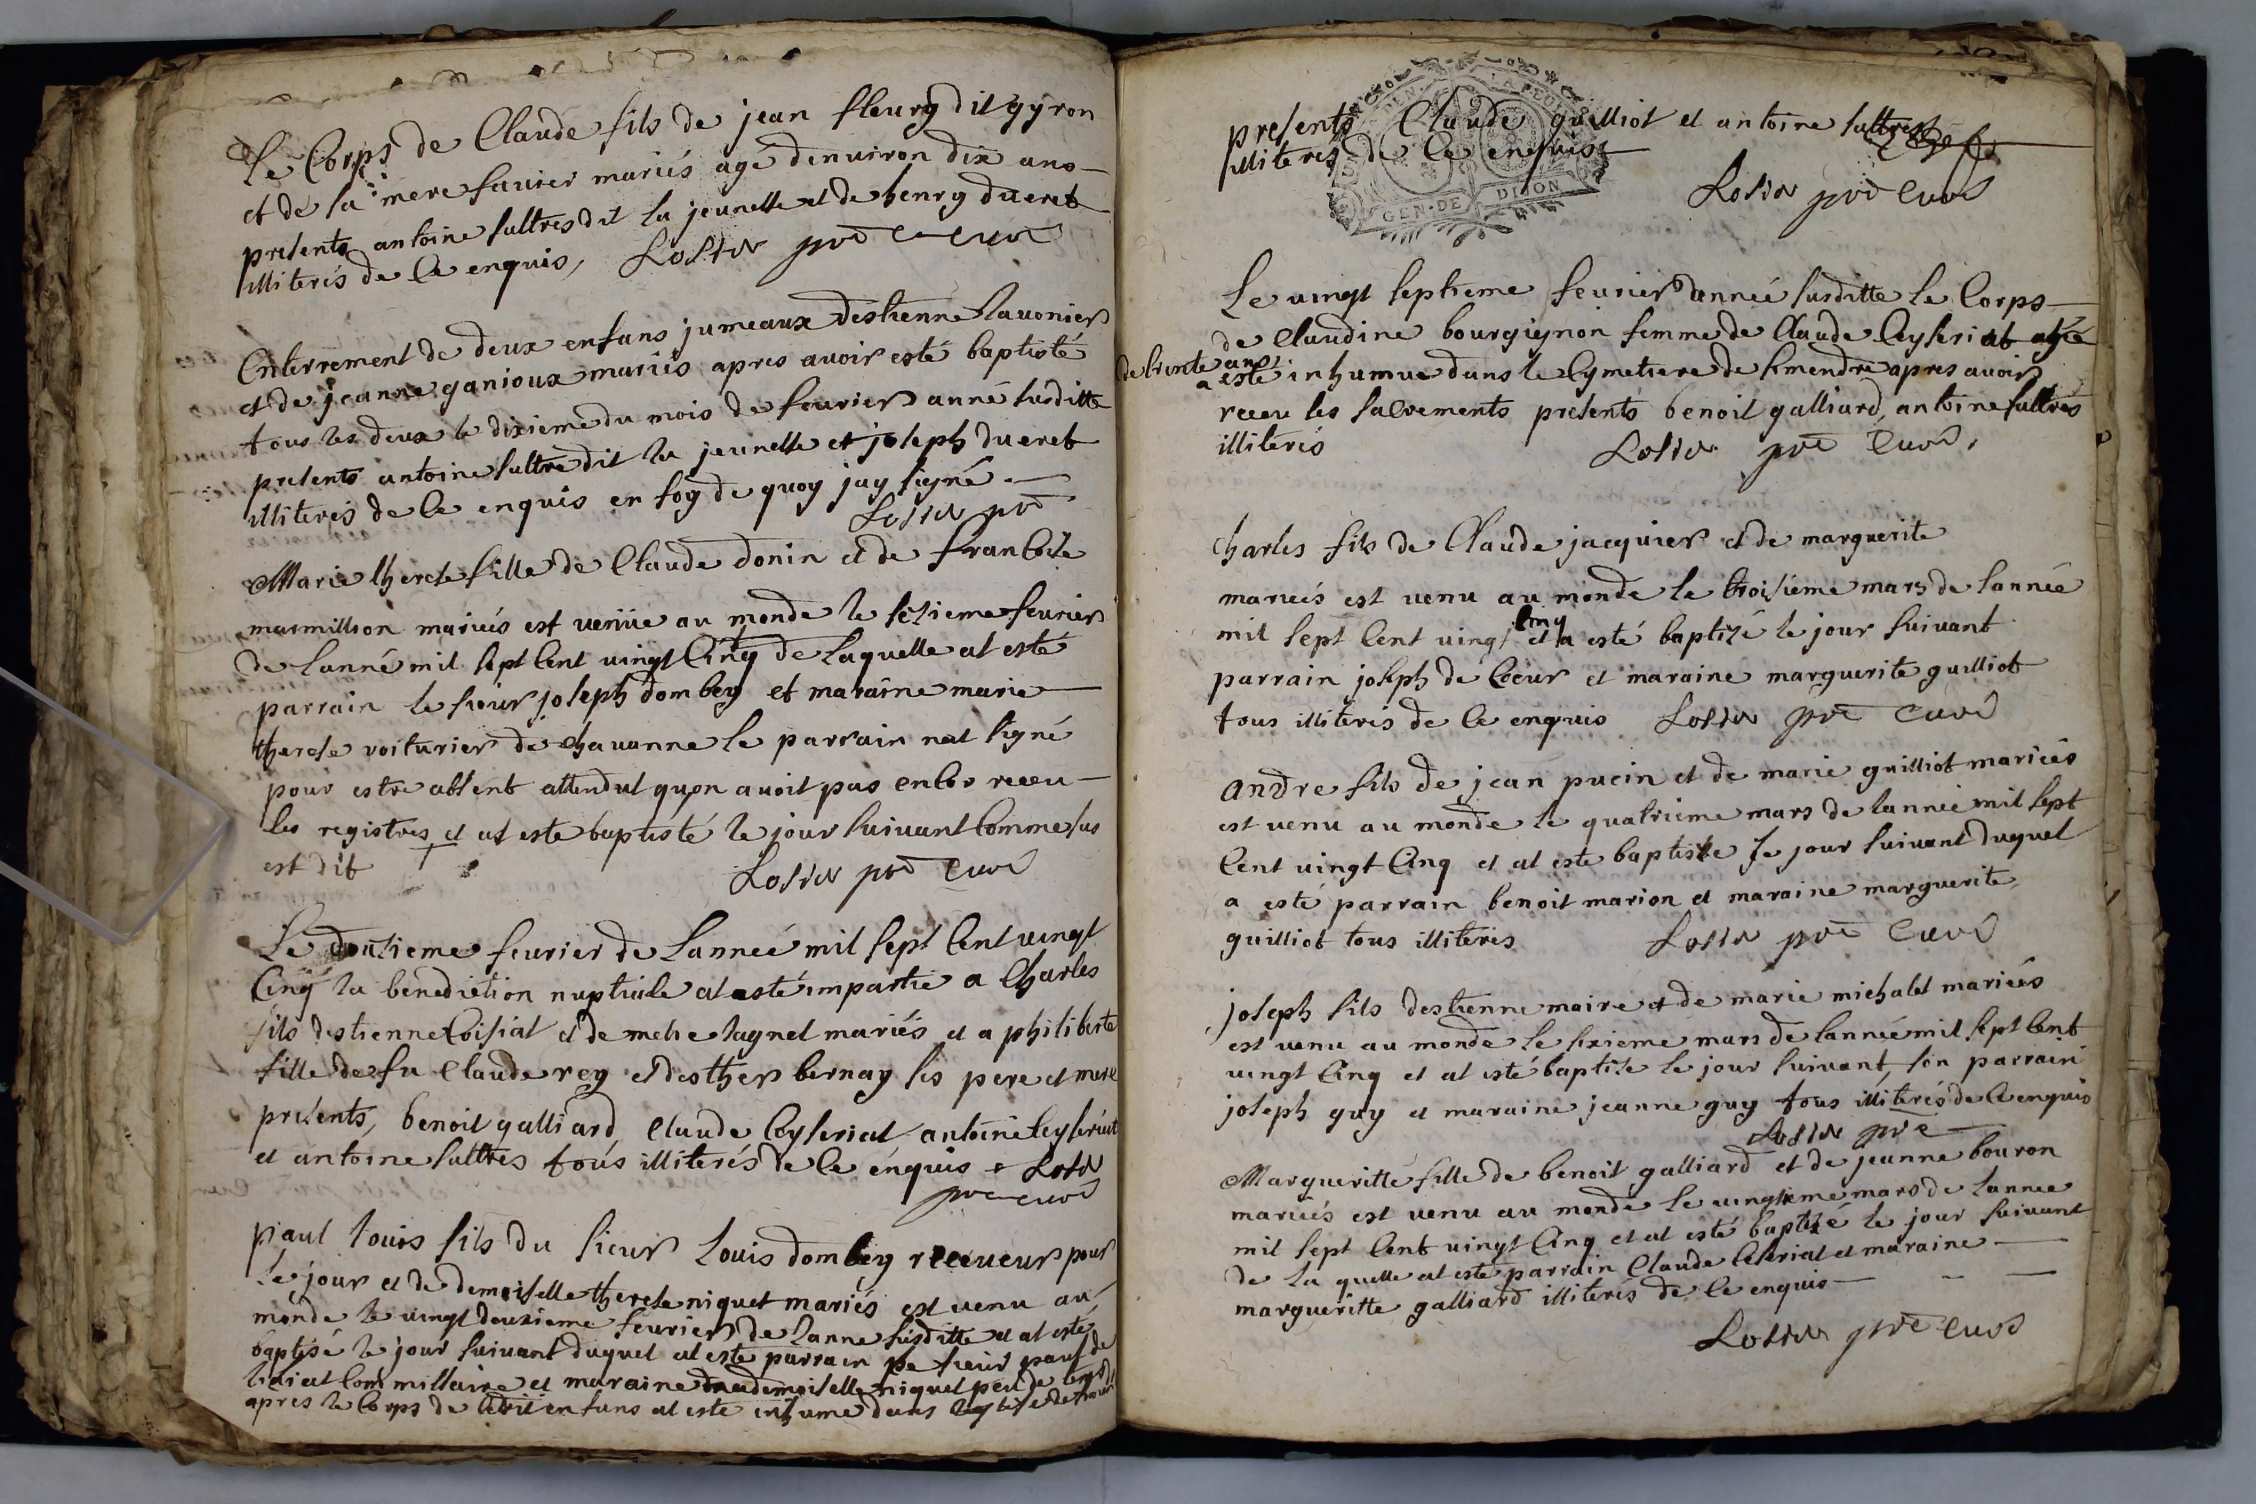 Le Corps de Claude fils de jean fleury dit gyron
et de sa mere fauier mariés agé denuiron dix ans
presents antoine sultres dit la jeunesse et de henry dueret
illiterés de ce enquis, Losier pre curé
Enterrement de deux enfans jumeaux destienne lauonier
et de jeanne ganioux mariés apres auoir esté baptisté
tous les deux le dixieme du mois de feurier anné susditte
presents antoine sultre dit la jeunesse et joseph dueret
illiterés de ce enquis en foy de quoy jay signé
Losier pre
Marie therese fille de Claude donin et de francoise
marmillion mariés est venüe au monde le sezieme feurier
de lanné mil sept cent uingt Cinq de laquelle at esté
parrain le sieur joseph dombey et maraine marie
therese voiturier de chauanne le parrain nat signé
pour estre absent attendut quon auoit pas encor receu
les registres et at este baptisté le jour suiuant comme sus
est dit Losier pre curé
Le douzieme feurier de Lanneé mil sept Cent uingt
Cinq la benediction nuptiale at esté impartie a Charles
fils destienne Coisiat et de mehe lagnel mariés et a philiberte
fille de fu Claude rey et desther bernay ses pere et mere
presents, benoit galliard, claude Ceyseriat antoine Ceyseriat
et antoine sultres tous illiterés de ce enquis Losier
pre curé
paul louis fils du sieur Louis dombey receueur pour
le jour et de demoiselle therese niquet mariés est venu au
monde le uingt deuxieme feurier de lanne susditte et at esté
baptisé le jour suiuant duquel at esté parrain le sieur paul de
liniat Commissaire et maraine mademoiselle niquet peu de temps
apres le Corps de cedit enfans at este inhumé dans leglise de
presents Claude guilliot et antoine sultres
illiterés de ce enquis
GEN. DE DIJON
Losier pre curé
Le uingt septieme feurier année susditte le Corps
de Claudine bourgignon femme de Claude Ceyseriat agée
de trente ans
a esté inhumue dans le Cymetiere de simendre apres auoir
receu les sacrements presents benoit galliard, antoine sultres
illiterés Losier pre Curé,
charles fils de Claude jacquier et de marguerite
mariés est uenu au monde le troisieme mars de lannée
mil sept Cent uingt cinq et a esté baptizé le jour suiuant
parrain joseph de Coeur et maraine marguerite guilliot
tous illiterés de ce enquis Losier pre curé
andre fils de jean pucin et de marie guilliot mariées
est uenu au monde le quatrieme mars de lanneé mil sept
Cent uingt Cinq et at este baptiste le jour suiuant duquel
a esté parrain benoit marion et maraine marguerite
guilliot tous illiterés Losier pre Curé
joseph fils destienne maire et de marie michalet mariées
est uenu au monde le sixieme mars de lanneé mil sept Cent
uingt Cinq et at esté baptize le jour suiuant, son parrain
joseph guy et maraine jeanne guy tous illiterés de ce enquis
Losier pre
Margueritte fille de benoit galliard et de jeanne bouron
mariés est uenu au monde le uingtieme mars de lannee
mil sept Cent uingt Cinq et at esté baptizé le jour suiuant
de la quelle at este parrain Claude Ceseriat et maraine
margueritte galliard illiterés de ce enquis
Losier pre curé